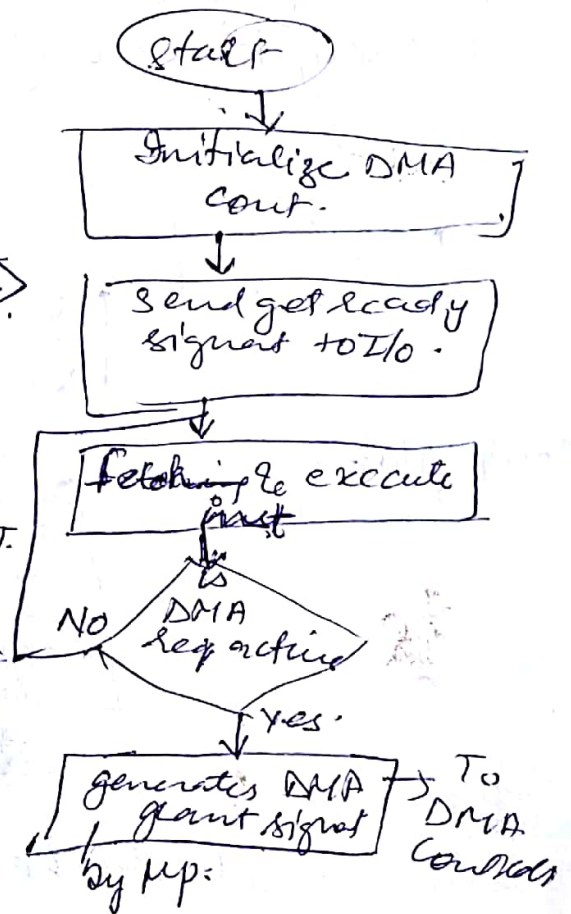 Start
Initialize DMA
cont.
Send get ready
signal to I/O.
fetch & execute
inst
is
DMA
req active
No
Yes.
generates DMA
grant signal
by μp.
To
DMA
Controller
T.